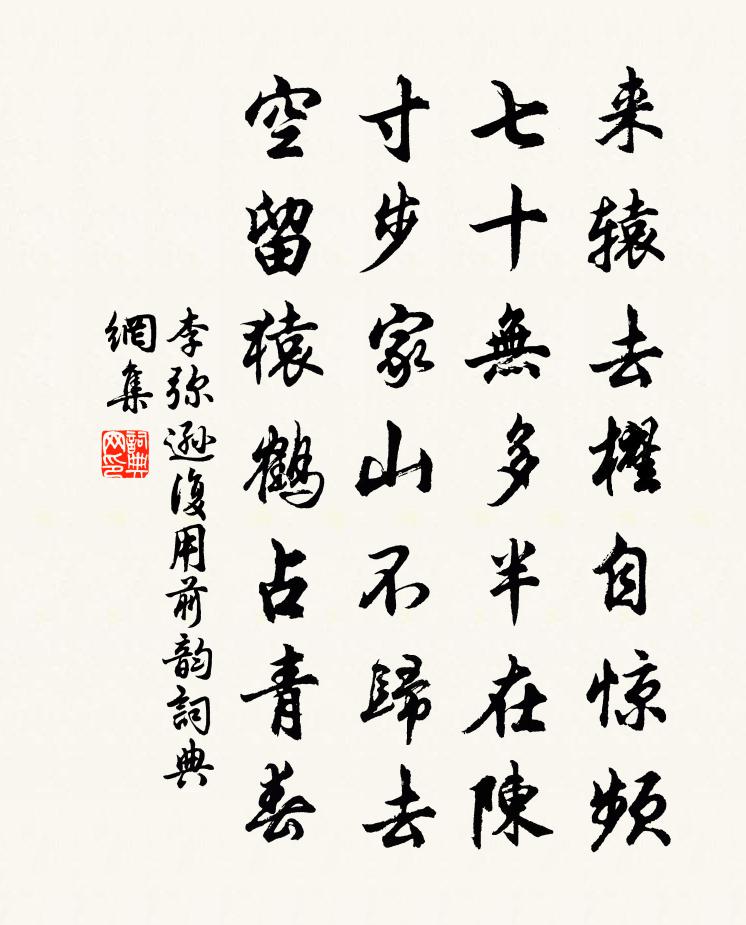 来辕去櫂自惊频
七十無多半在陳
寸步家山不歸去
空留猿鶴占青春
李弥遜復用前韵詞典
網集
詞典网印